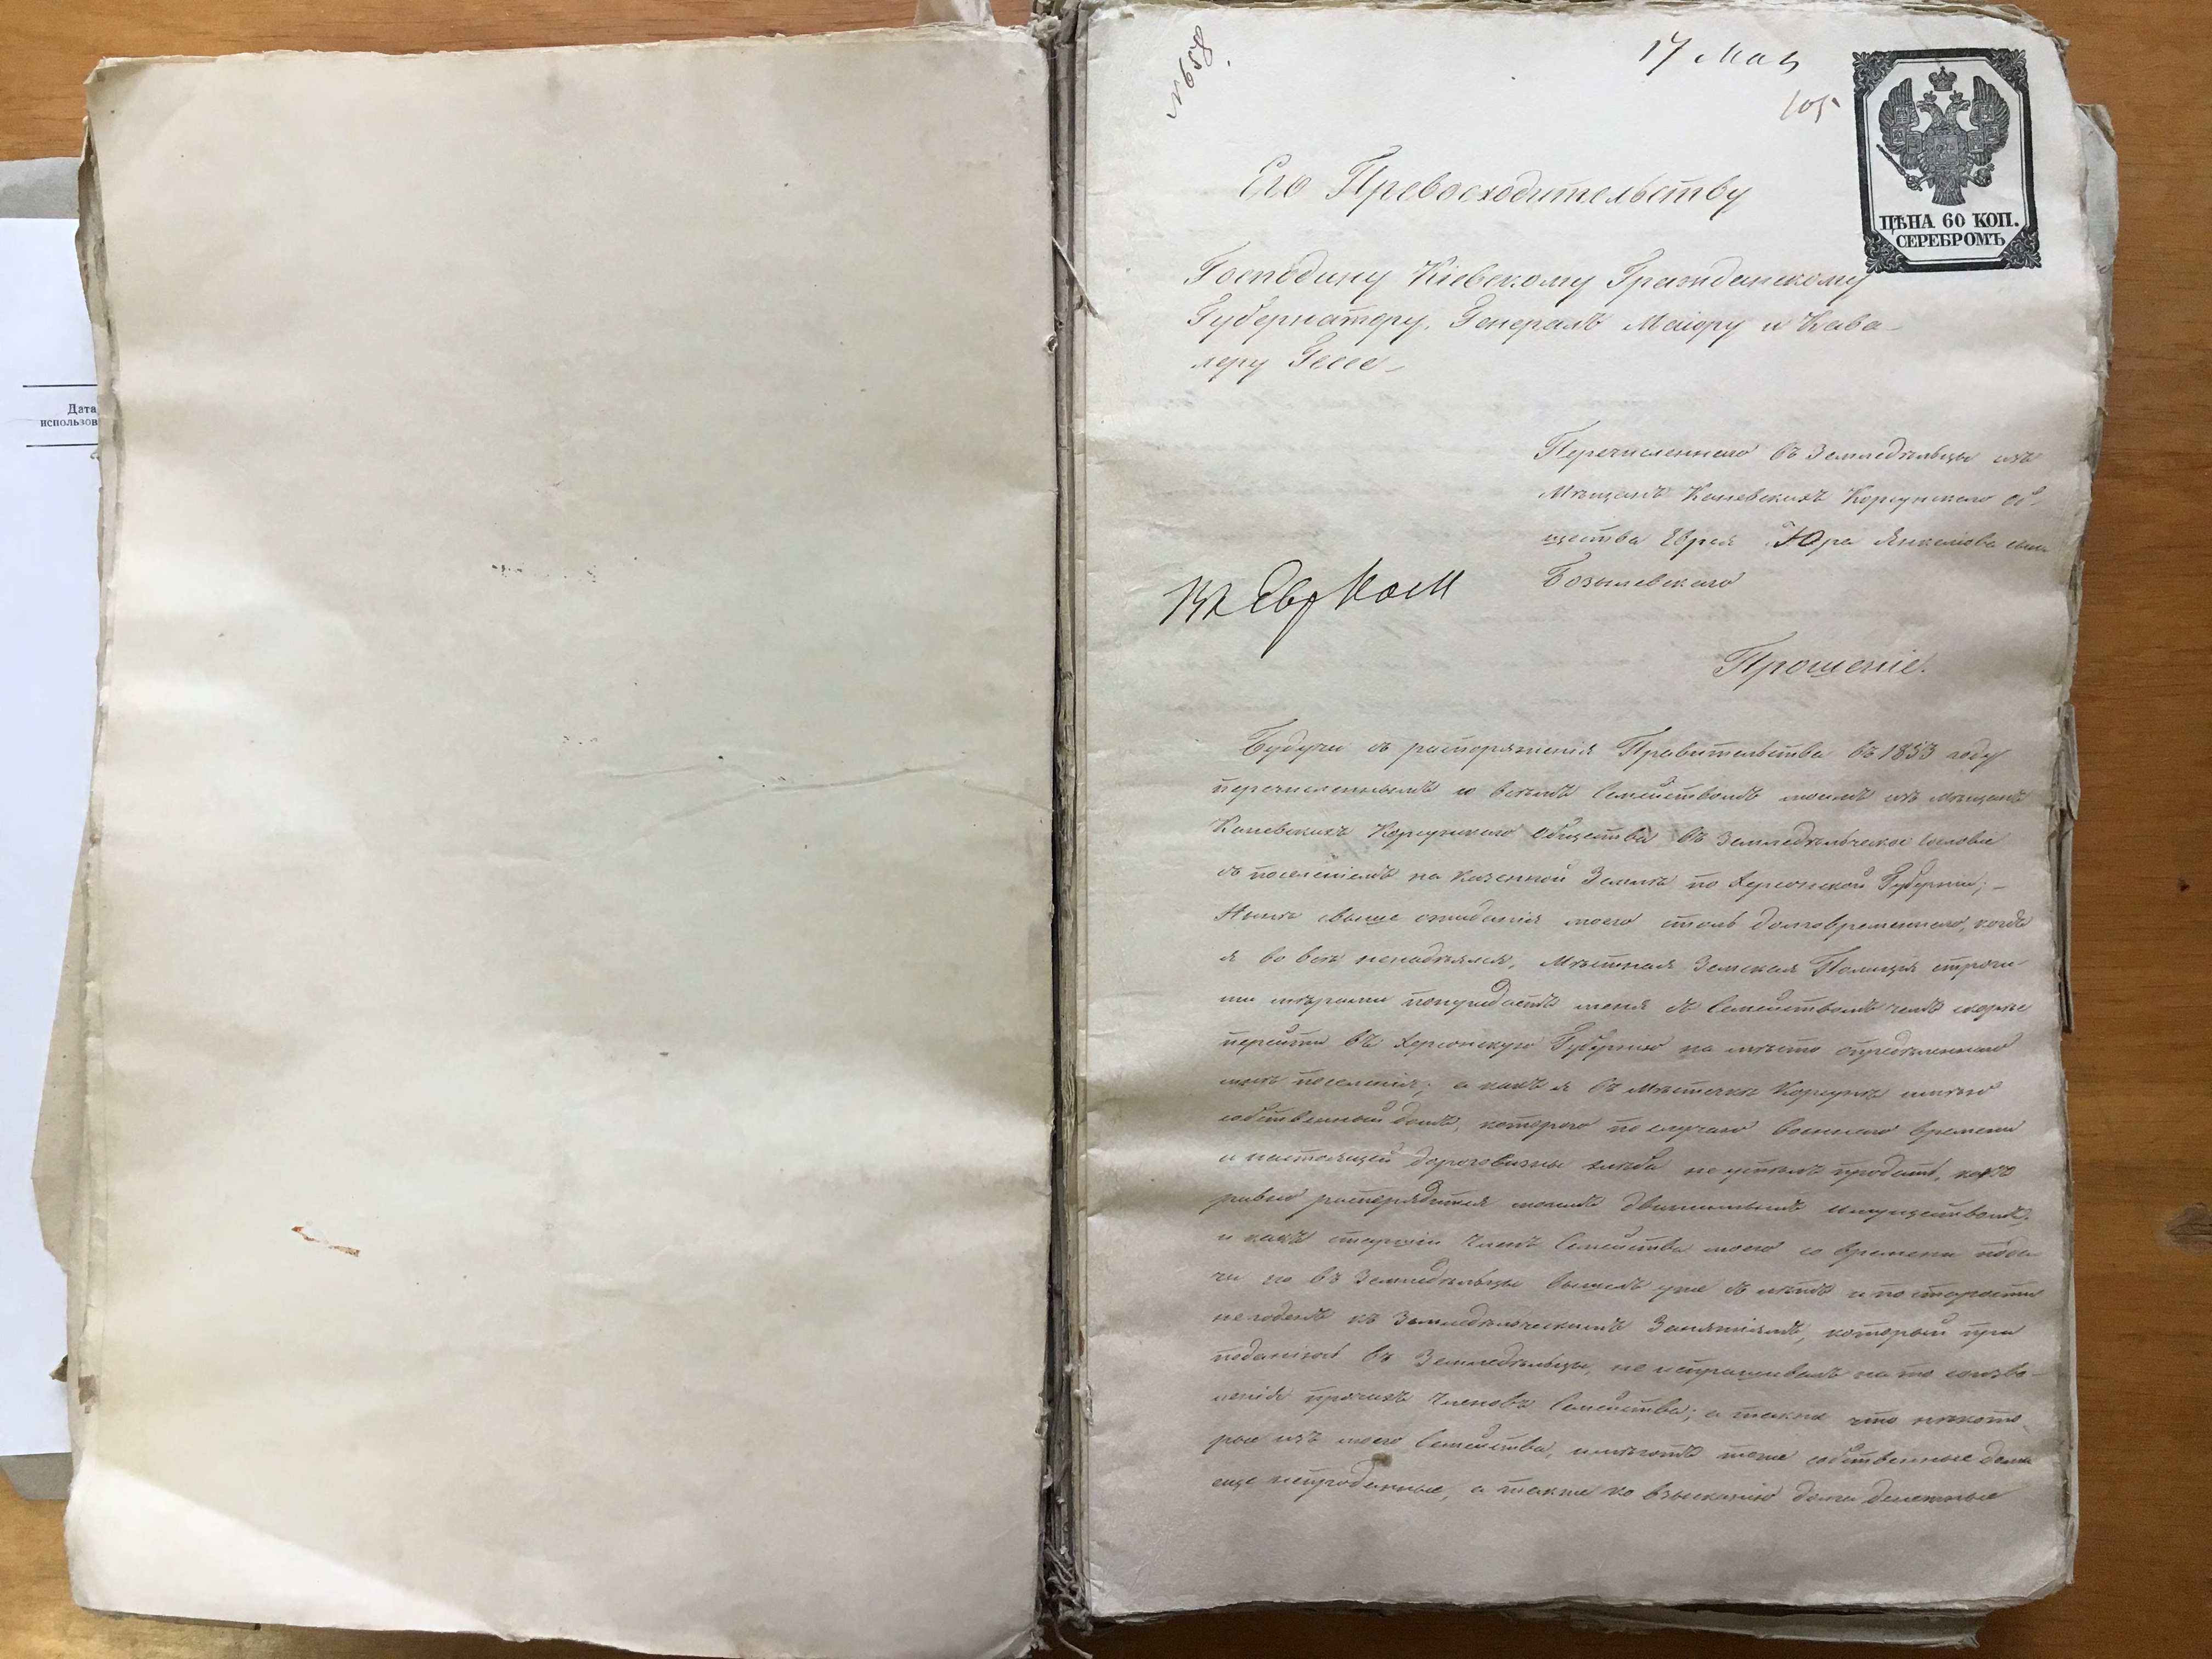 Дата
использов
№ 658.
17 Мая
105
ЦѢНА 60 КОП.
СЕРЕБРОМЪ
Его Превосходительству
Господину Кіевскому Гражданскому
Губернатору, Генералъ Маіору и Кава-
леру Гессе
Перечисленнаго въ Земледѣльцы изъ
Мѣщанъ Каневскихъ Корсунскаго Об-
щества Еврея Юра Янкелiова сына
Бозылевскаго
Въ Евр Ком
Прошеніе.
Будучи съ распоряженія Правительства въ 1853 году
перечисленнымъ со всѣмъ Семействомъ моимъ изъ мѣщанъ
Каневскихъ Корсунскаго Общества въ Земледѣльческое Сословіе
съ поселеніемъ на Казенной Землѣ по Херсонской Губерніи; –
Нынѣ свыше ожиданія моего столь долговременнаго, когда
я во все ненадѣялся, Мѣстная Земская Полиція строги-
ми мѣрами понуждаетъ меня съ Семействомъ чемъ скорѣе
перейти въ Херсонскую Губернію на мѣсто опредѣленнаго
мнѣ поселенія; а какъ я въ Мѣстечкѣ Корсунѣ имѣю
собственный домъ, котораго по случаю военнаго времени
и настоящей дороговизны хлѣба не успѣлъ продать, какъ
равно распорядится моимъ движимымъ имуществомъ;
и какъ старшій Членъ Семейства моего со времени пода-
чи въ Земледѣльцы вышелъ уже съ лѣтъ и по старости
негоденъ къ Земледѣльческимъ Занятіямъ, который при
поданіи въ Земледѣльцы, не испрашивалъ на то соизво-
ленія прочихъ Членовъ Семейства; а также что нѣкото-
рые изъ моего Семейства, имѣютъ тоже собственные дома
еще непроданные, а также ко взысканію долги денежные